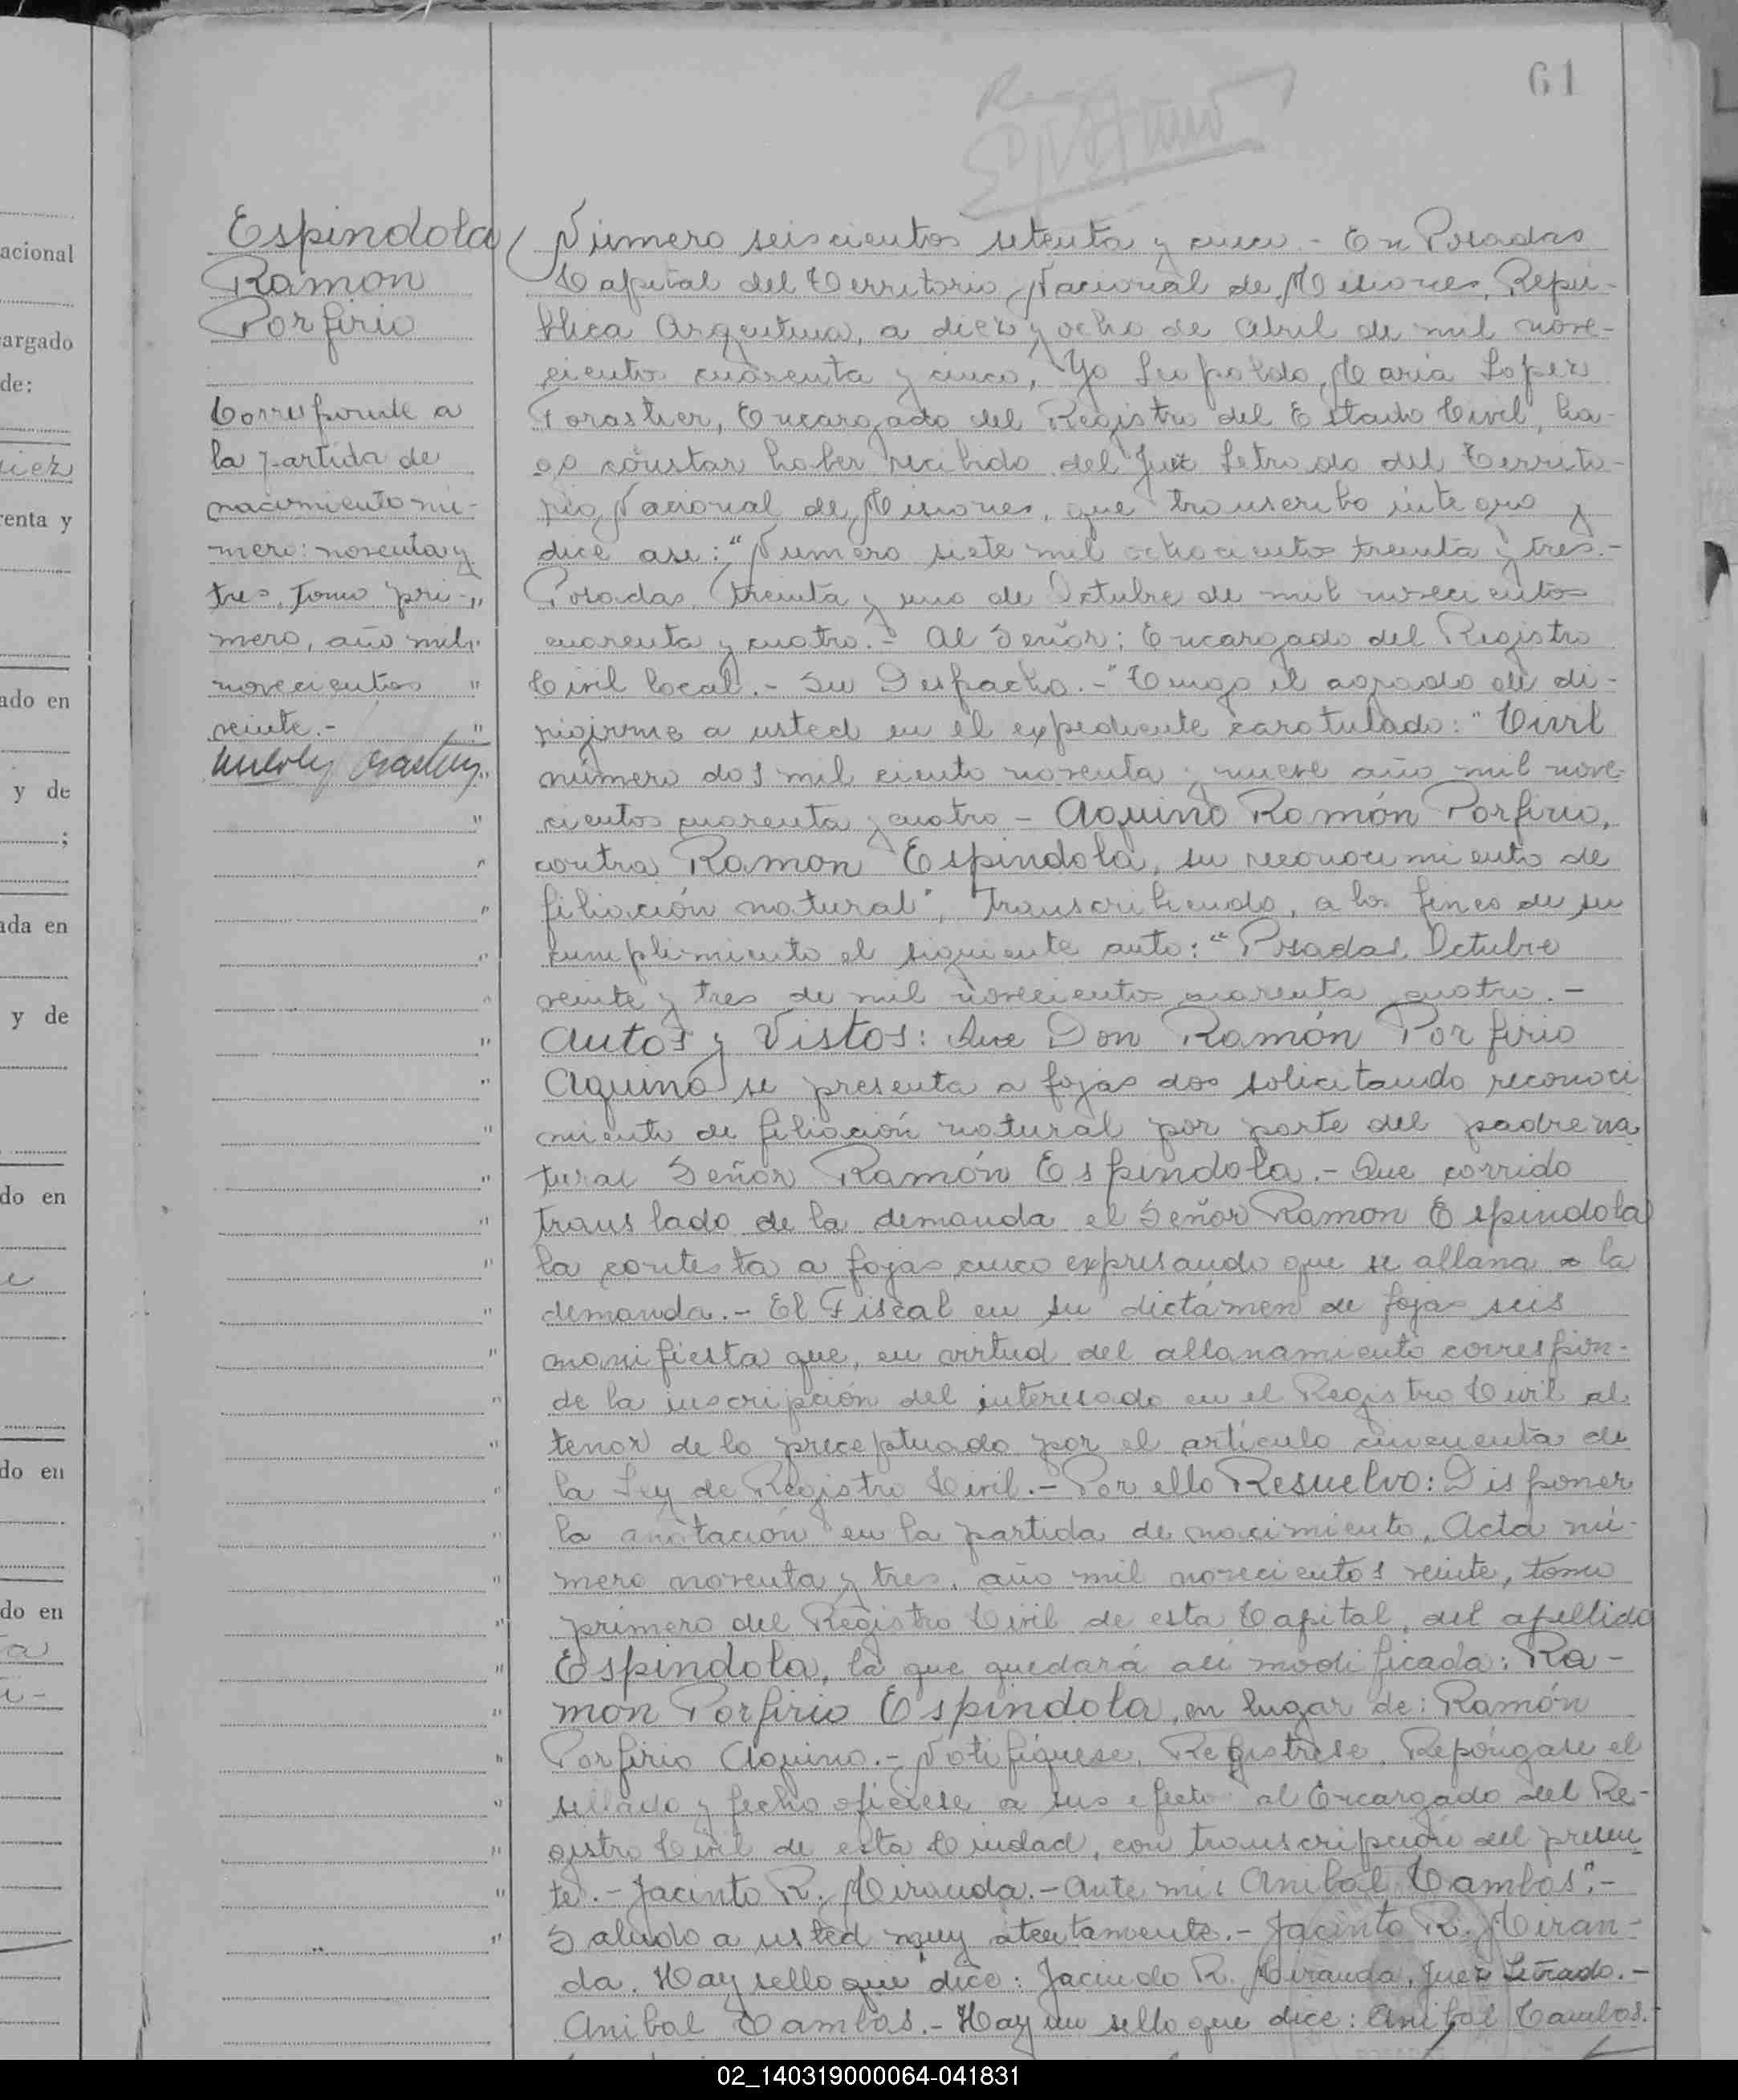 61
Espindola
Ramon
Porfirio
Corresponde a
la partida de
nacimiento nú-
mero: noventa y
tres, Tomo pri-"
mero, año mil "
novecientos "
veinte.- "
Número seiscientos setenta y cinco.- En Posadas
Capital del Territorio Nacional de Misiones, Repú-
blica Argentina, a diez y ocho de Abril de mil nove-
cientos cuarenta y cinco, Yo Leopoldo Maria Lopez
Forastier, Encargado del Registro del Estado Civil, ha-
go constar haber recibido del Juez Letrado del Territo-
rio Nacional de Misiones, que transcribo integro y
dice asi: "Numero siete mil ochocientos treinta y tres.-
Posadas, treinta y uno de Octubre de mil novecientos
cuarenta y cuatro.- Al Señor: Encargado del Registro
Civil local.- Su Despacho.- "Tengo el agrado de di-
rigirme a usted en el expediente caratulado: "Civil
número dos mil ciento noventa y nueve año mil nove-
cientos cuarenta y cuatro - Aquino Ramón Porfirio,
contra Ramon Espindola, su reconocimiento de
filiación natural", transcribiendo, a los fines de su
cumplimiento el siguiente auto: "Posadas, Octubre
veinte y tres de mil novecientos cuarenta cuatro.-
Autos y Vistos: Que Don Ramón Porfirio
Aquino se presenta a fojas dos solicitando reconoci
miento de filiación natural por parte del padre na
tural Señor Ramón Espindola.- Que corrido
translado de la demanda el Señor Ramon Espindola
la contesta a fojas cinco expresando que se allana a la
demanda.- El Fiscal en su dictámen de fojas seis
manifiesta que, en virtud del allanamiento correspon-
de la inscripción del interesado en el Registro Civil al
tenor de lo preceptuado por el artículo cincuenta de
la Ley de Registro Civil.- Por ello Resuelvo: Disponer
la anotación en la partida de nacimiento, Acta nú-
mero noventa y tres, año mil novecientos veinte, tomo
primero del Registro Civil de esta Capital, del apellido
Espindola, la que quedará asi modificada: Ra-
mon Porfirio Espindola, en lugar de: Ramón
Porfirio Aquino.- Notifíquese, Registrese, Repóngase el
sellado y fecho ofíciese a sus efecto al Encargado del Re-
gistro Civil de esta Ciudad, con transcripción del presen
te.- Jacinto R. Miranda.- Ante mi: Anibal Cambas".-
Saludo a usted muy atentamente.- Jacinto R. Miran-
da. Hay sello que dice: Jacindo R. Miranda, Juez Letrado.-
Anibal Cambas.- Hay un sello que dice: Anibal Cambas.-
acional
argado
de:
renta y
ado en
y de
;
ada en
y de
do en
do en
do en
02_140319000064-041831